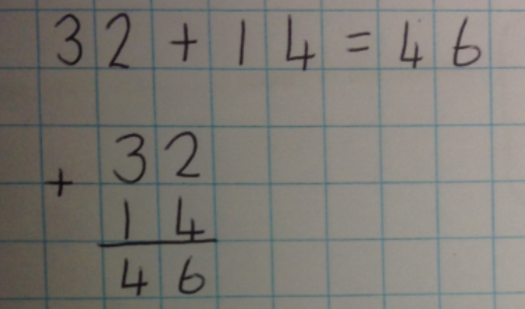 32+14=46
32
+ 14
46